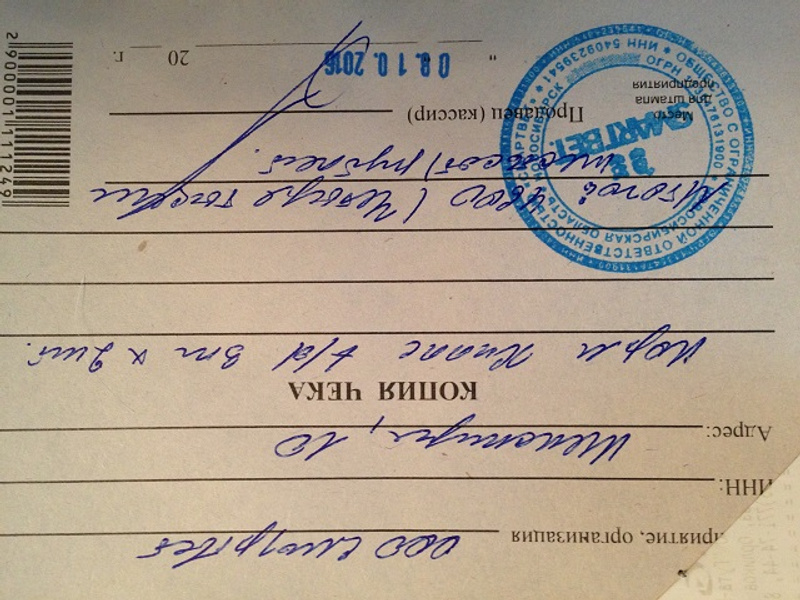 приятие, организация ООО Смартвет
ИНН:
Адрес: 10
КОПИЯ ЧЕКА
Корм Хиллс т/d 3кг х 2шт.
Итого: 4800 (Четыре тысячи
восемьсот) рублей.
Продавец (кассир)
" 08.10.2016 20 г.
Место
для штампа
предприятия
ОБЩЕСТВО С ОГРАНИЧЕННОЙ ОТВЕТСТВЕННОСТЬЮ
НОВОСИБИРСКАЯ ОБЛАСТЬ
ИНН 5409239541
ОГРН
2900001111249